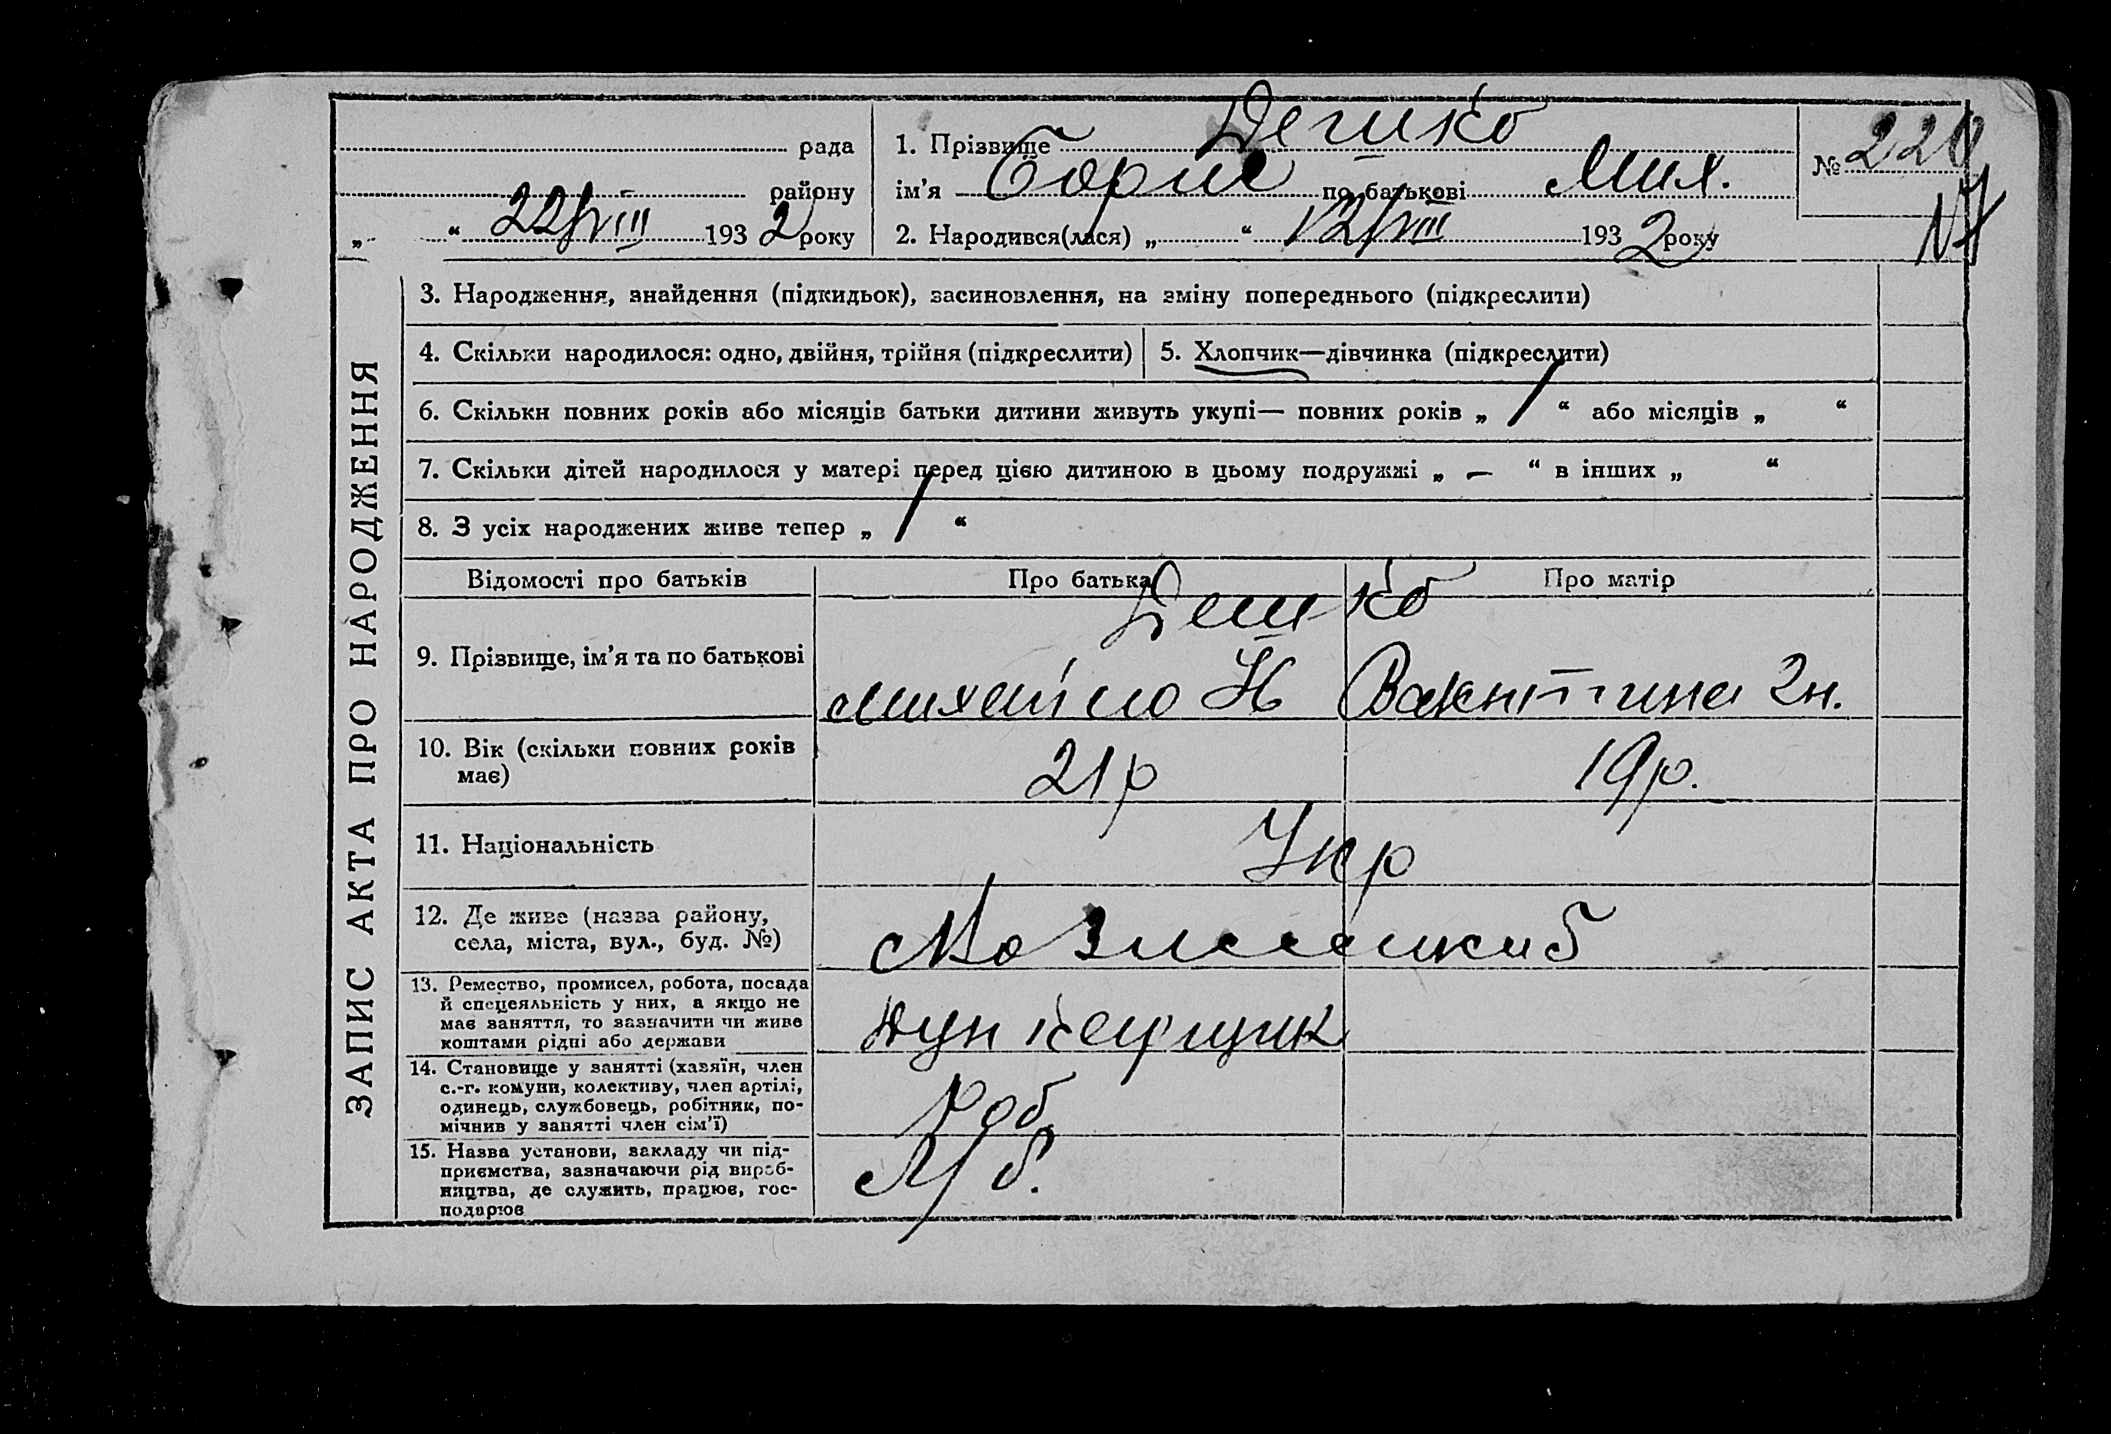 рада
района
„ “ 22/VIII 1932 року
1. Прізвище Дешко
ім’я Борис по батькові Мих.
2. Народився(лася) „ “ 12/VIII 1932 року
№
ЗАПИС АКТА ПРО НАРОДЖЕННЯ
3. Народження, знайдення (підкидьок), засиновлення, на зміну попереднього (підкреслити)
4. Скільки народилося: одно, двійня, трійня (підкреслити) 5. Хлопчик—дівчинка (підкреслити)
6. Скільки повних років або місяців батьки дитини живуть укупі— повних років „ 1 “ або місяців „ “
7. Скільки дітей народилося у матері перед цією дитиною в цьому подружжі „ – “ в інших „ “
8. З усіх народжених живе тепер „ 1 “
Відомості про батьків Про батька Про матір
Дешко
9. Прізвище, ім’я та по батькові Михайло Н
10. Вік (скільки повних років 21р 19р.
має)
11. Національність Укр
12. Де живе (назва району,
села, міста, вул., буд. №)
13. Ремество, промисел, робота, посада
й спецеяльність у них, а якщо не
має заняття, то зазначити чи живе
коштами рідні або держави
14. Становище у занятті (хазяїн, член
с.-г. комуни, колективу, член артілі,
одинець, службовець, робітник, по-
мічнив у занятті член сім’ї) Роб
15. Назва установи, закладу чи під-
приємства, зазначаючи рід вироб-
ництва, де служить, працює, гос-
подарює